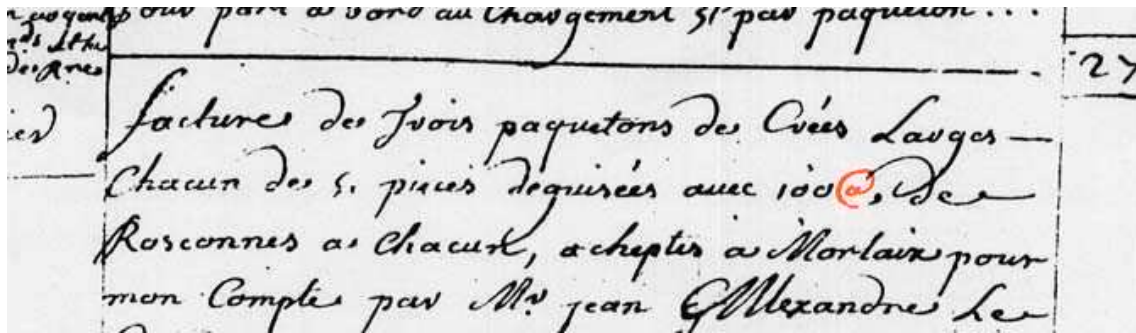 pour part a bord au Chargement 5l par paqueton . . .
27
facture de Trois paquetons de Crées Larges —
Chacun de 5. pieces deguisées avec 100 @. de
Rosconnes a Chacun, acheptés a Morlaix pour
mon Compte par Mr. jean & Alexandre Le